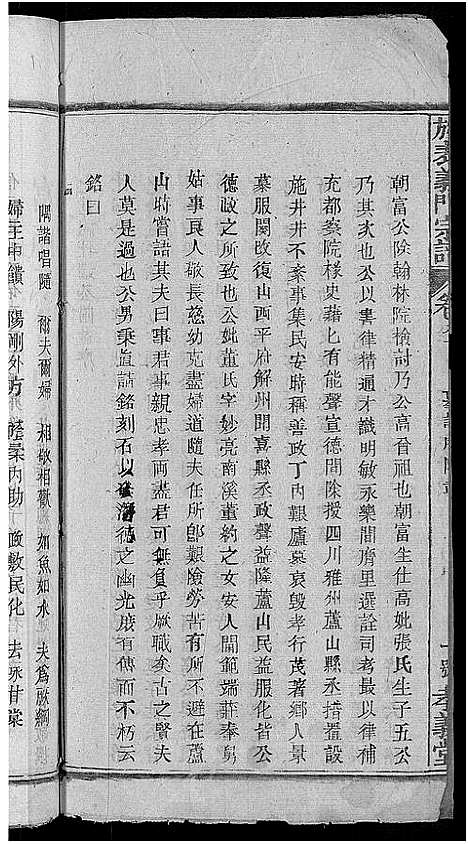 旌表義門宗譜 卷
孝義堂
朝富公除翰林院檢討乃公高晉祖也朝富生仕高妣張氏生子五公
乃其次也公以書律精通才識明敏永樂間膺里選詮司考最以律補
充都察院椽史藉匕有能聲宣德間除授四川雅州蘆山縣丞措置設
施井井不紊事集民安時稱善政丁內艱廬哀哀毀孝行茂著鄉人景
慕服闋改復山西平府解州聞喜縣丞政聲益隆蘆山民益服化皆公
德政之所致也公妣董氏字妙亮南溪董約之女安人閫範端莊奉舅
姑事良人敬長慈幼克盡婦道隨夫任所卽艱險勞苦有所不避在蘆
山時嘗語其夫曰事君事親忠孝両盡君可無負乎厥職矣古之賢夫
人莫是過也公男毎直請銘刻石以發潛德之幽光庶有傳而不朽云
銘曰
隅諧唱隨 爾夫爾婦 相敬相歡 如魚如水 夫爲厥綱
婦主中饋 陽剛外方 陰柔內助 政敷民化 去詠甘棠